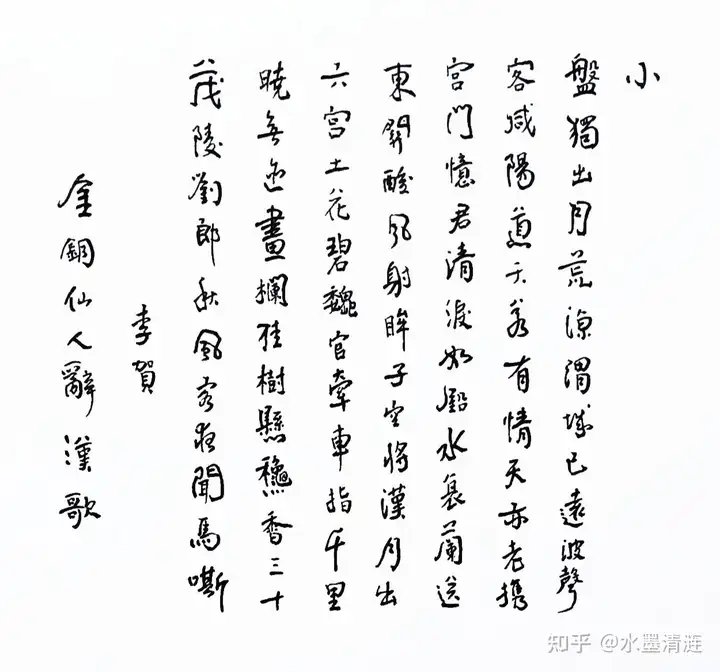 金銅仙人辭漢歌
李賀
茂陵劉郎秋風客夜聞馬嘶
曉無迹畫欄桂樹懸龝香三十
六宮土花碧魏官牽車指千里
東關酸風射眸子空將漢月出
宮門憶君清淚如鉛水衰蘭送
客咸陽道天若有情天亦老攜
盤獨出月荒涼渭城已遠波聲
小
知乎 @水墨清涟